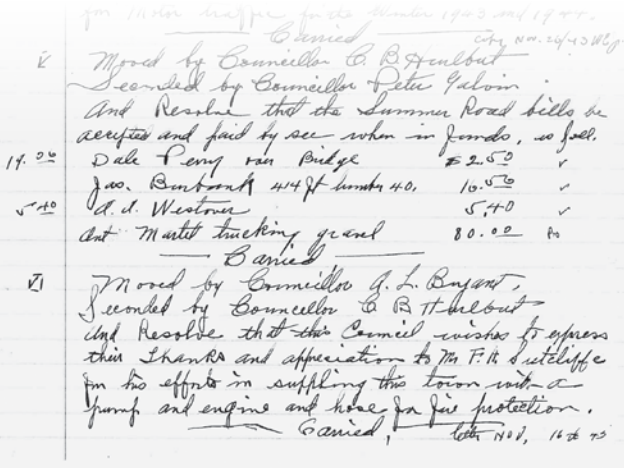 for Motor traffic for the Winter 1943 and 1944.
Carried
City Nov. 26/43
V Moved by Councillor C. B. Hurlbut
Seconded by Councillor Peter Galvin
And Resolve that the Summer Road bills be
accepted and paid by sec when in funds, as foll.
19.00 Dale Perry over Bridge $2.50 ✓
Jas. Burbank 414 ft lumber 40. 16.56 ✓
5.40 A. A. Westover 5.40 ✓
Ant Martel trucking gravel 80.00
Carried
VI Moved by Councillor A. L. Bryant,
Seconded by Councellor C B Hurlbut
and Resolve that this Council wishes to express
their Thanks and appreciation to Mr F. H Sutcliffe
for his efforts in suppling this town with a
pump and engine and hose for fire protection.
Carried, letter Nov, 16th 43